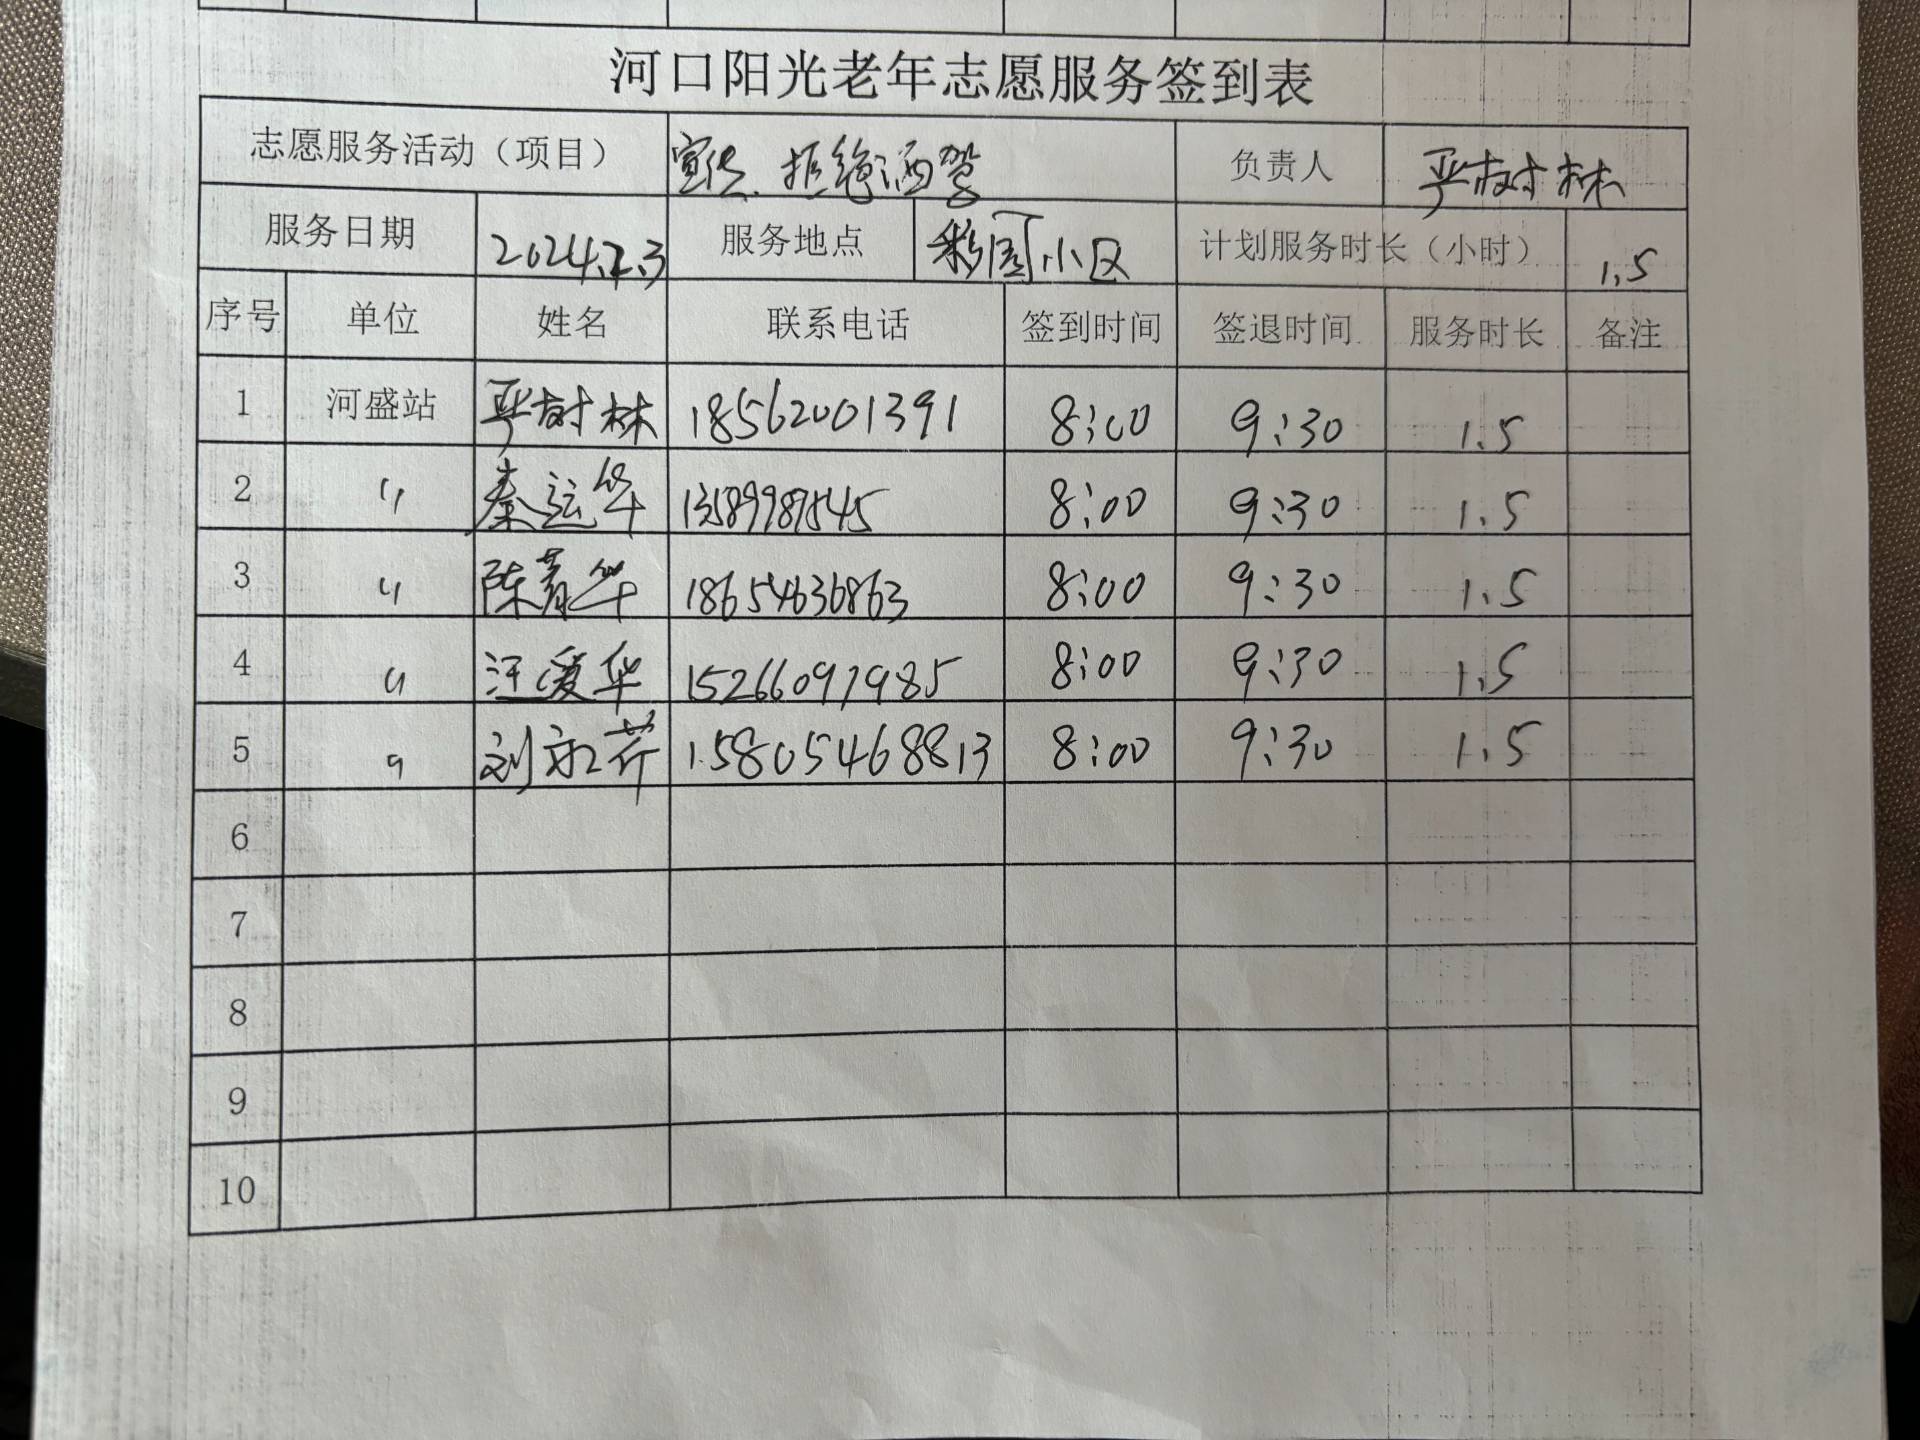 河口阳光老年志愿服务签到表
志愿服务活动（项目） 宣传.拒绝酒驾 负责人 严树林
服务日期 2024.7.3 服务地点 彩园小区 计划服务时长（小时） 1.5
序号 单位 姓名 联系电话 签到时间 签退时间 服务时长 备注
1 河盛站 严树林 18562001391 8:00 9:30 1.5
2 〃 秦运华 13589987545 8:00 9:30 1.5
3 〃 陈青华 18654636863 8:00 9:30 1.5
4 〃 汪爱华 15266097985 8:00 9:30 1.5
5 〃 刘永芹 15805468813 8:00 9:30 1.5
6
7
8
9
10